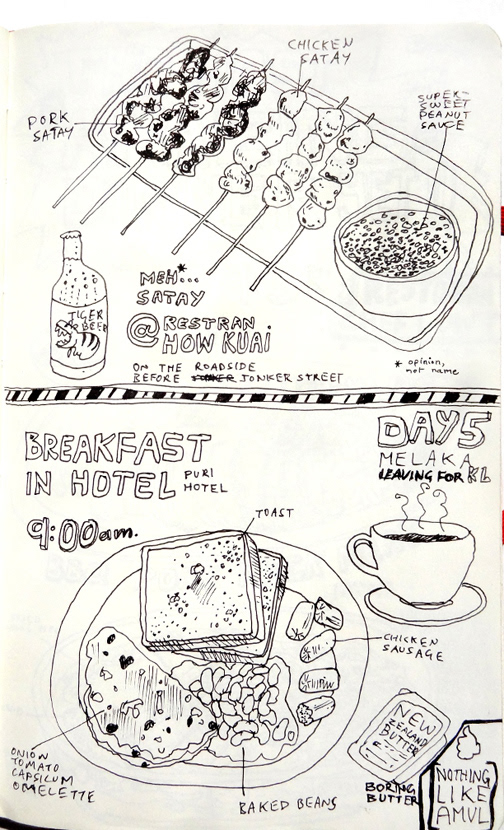 CHICKEN
SATAY
SUPER-
SWEET
PEANUT
SAUCE
PORK
SATAY
TIGER
BEER
MEH*...
SATAY
@ RESTRAN
HOW KUAI
ON THE ROADSIDE
BEFORE JONKER STREET
* opinion,
not name
DAY 5
MELAKA
LEAVING FOR KL
BREAKFAST
IN HOTEL
PURI
HOTEL
9:00am.
TOAST
CHICKEN
SAUSAGE
NEW
ZEALAND
BUTTER
BORING
BUTTER
NOTHING
LIKE
AMUL
ONION
TOMATO
CAPSICUM
OMELETTE
BAKED BEANS